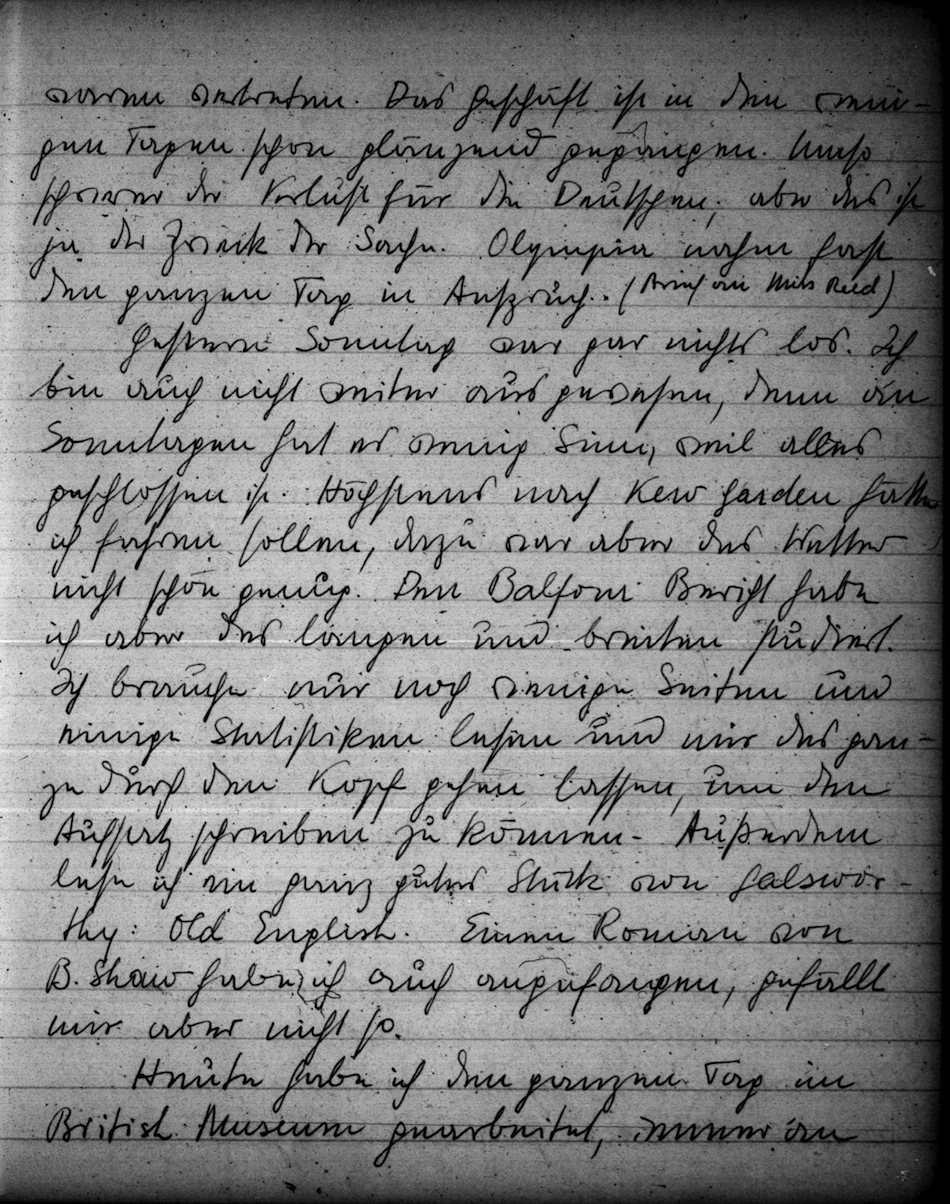 waren vertreten. Das Geschäft ist in den weni-
gen Tagen schon glänzend gegangen. Umso
schwerer der Verlust für die Deutschen, aber das ist
ja der Zweck der Sache. Olympia nahm fast
den ganzen Tag in Anspruch. (Brief an Miss Reed)
Gestern Sonntag war gar nichts los. Ich
bin auch nicht weiter aus gewesen, denn an
Sonntagen hat es wenig Sinn, weil alles
geschlossen ist. Höchstens nach Kew Garden hätte
ich fahren sollen, dazu war aber das Wetter
nicht schön genug. Den Balfour Bericht habe
ich aber des langen und breiten studiert.
Ich brauche nur noch wenige Seiten und
einige Statistiken lesen und mir das gan-
ze durch den Kopf gehen lassen, um den
Aufsatz schreiben zu können. Außerdem
lese ich ein ganz gutes Stück von Galswor-
thy: Old English. Einen Roman von
B. Shaw habe ich auch angefangen, gefällt
mir aber nicht so.
Heute habe ich den ganzen Tag im
British Museum gearbeitet, immer an